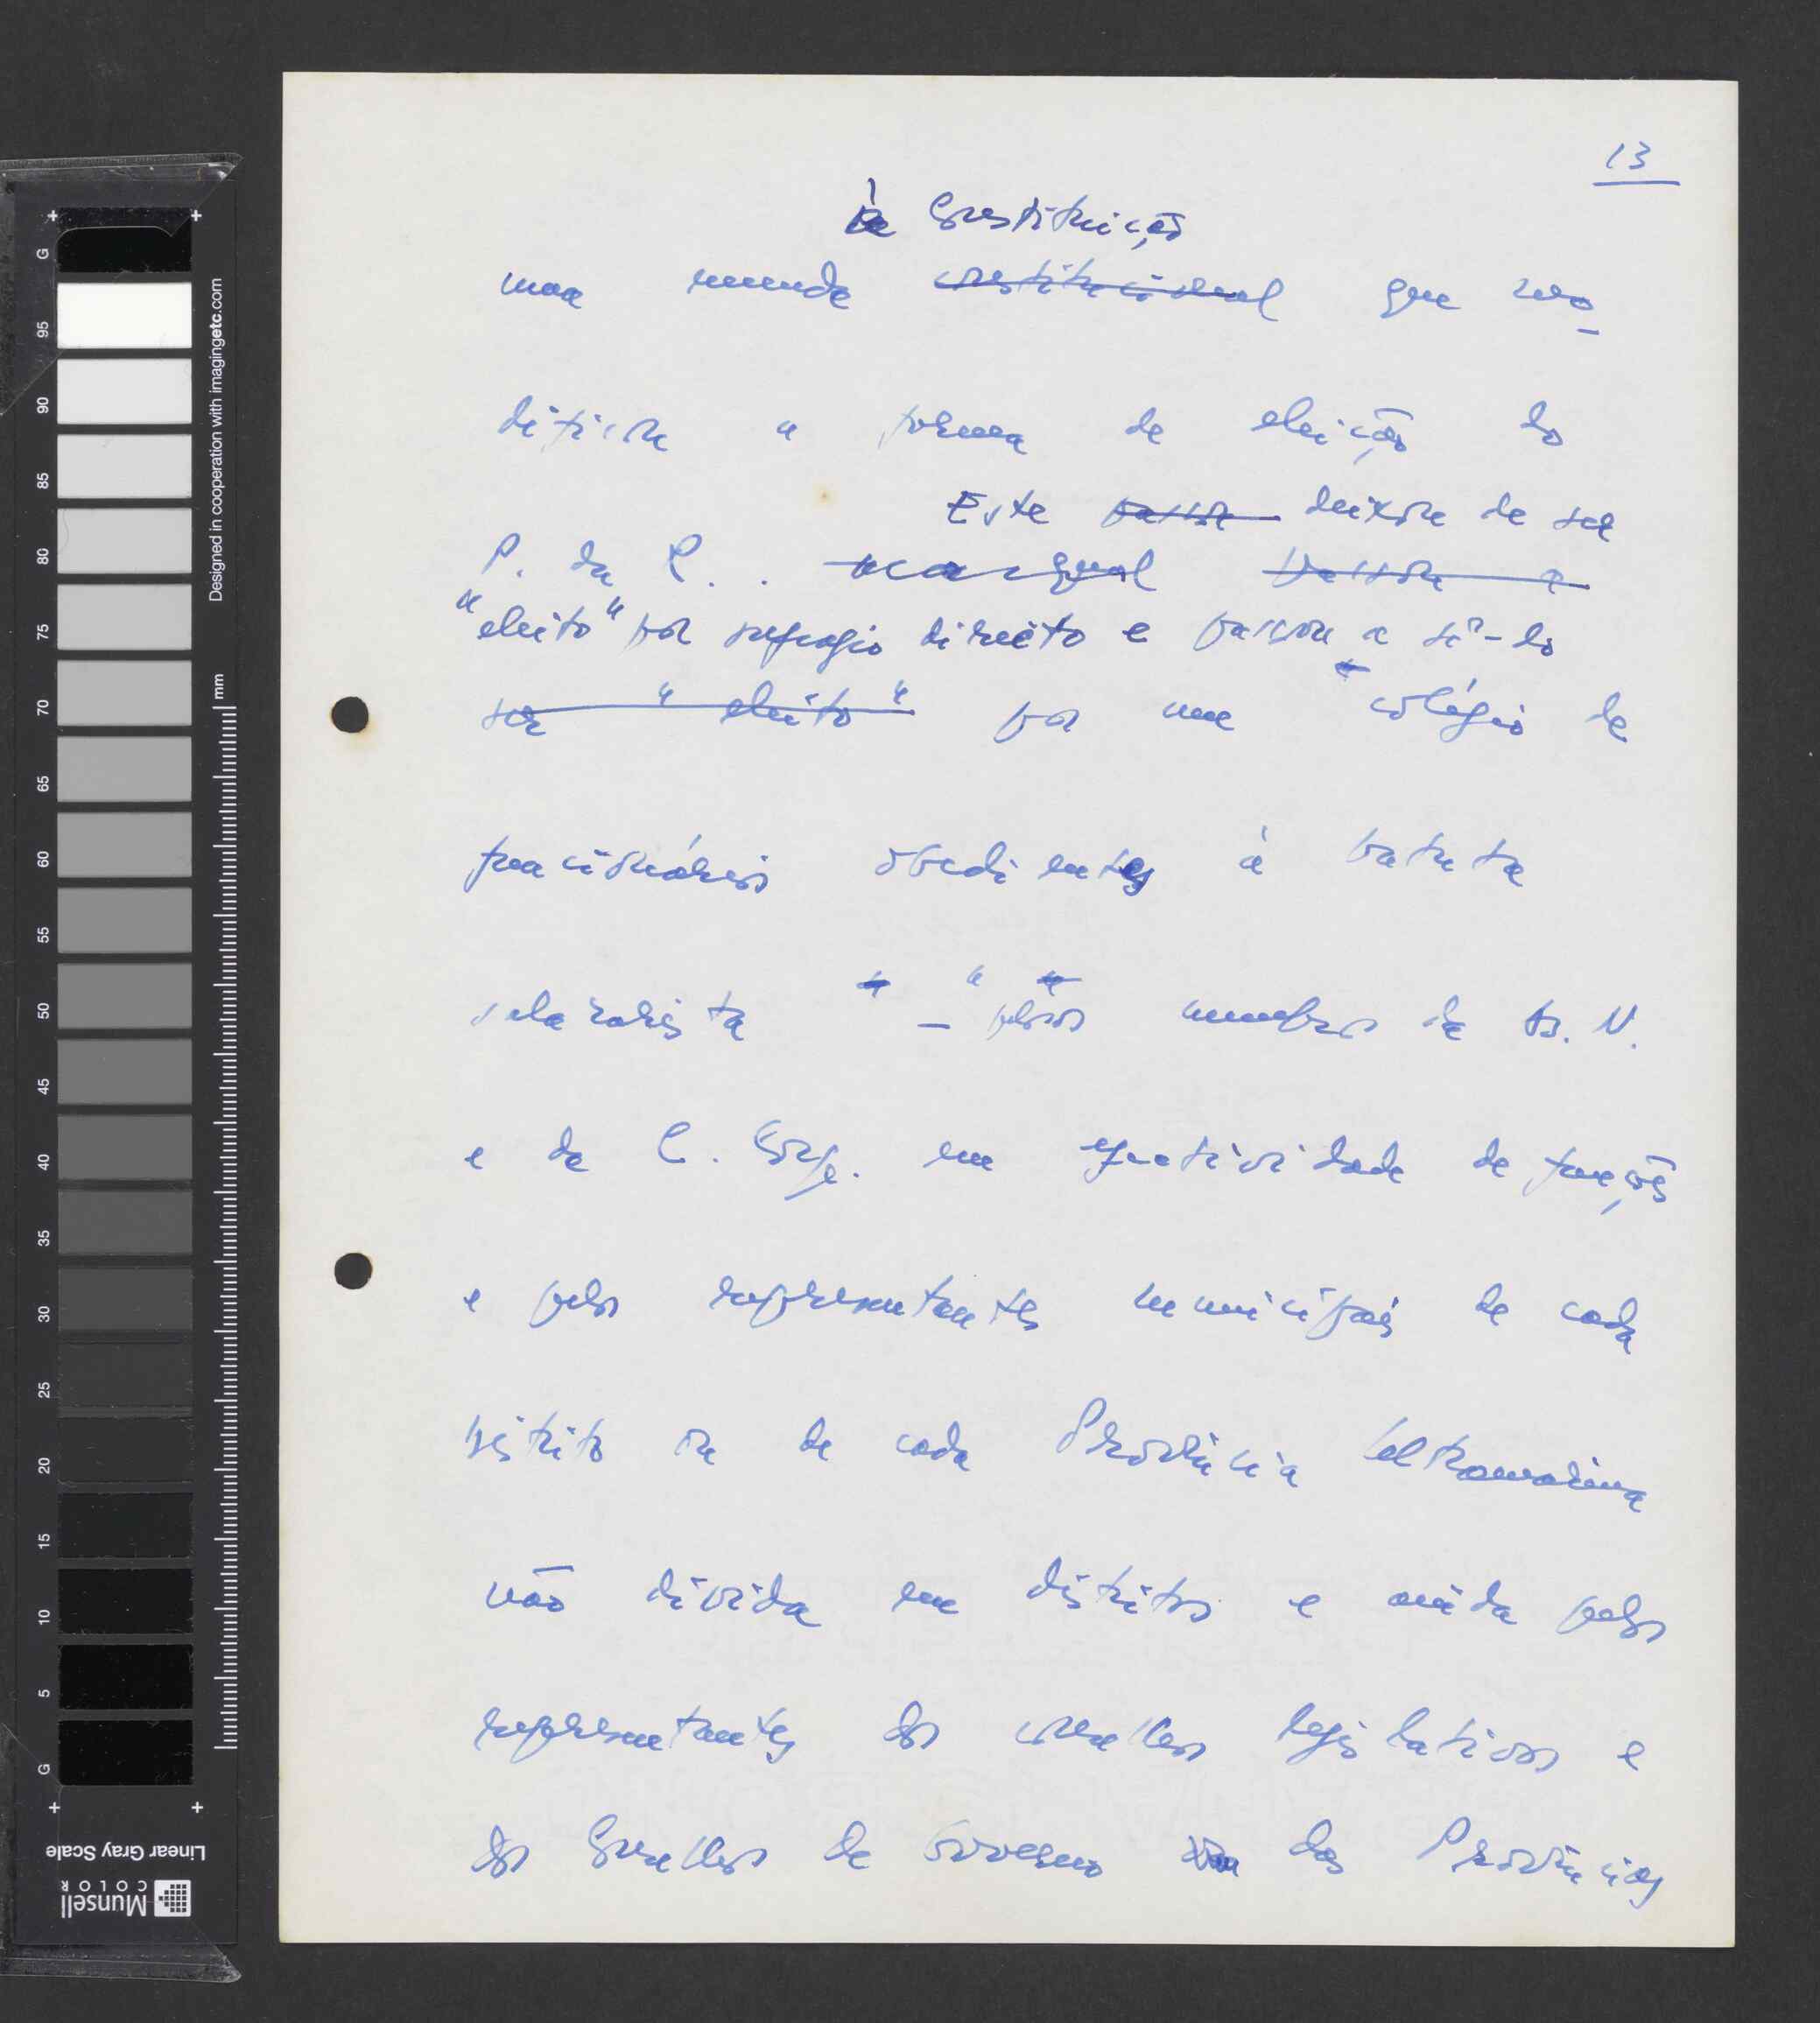 13
à Constituição
uma emenda constitucional que mo-
dificou a forma de eleição do
Este passou deixou de ser
P. da R. . o qual passou a
"eleito" por sufrágio directo e passou a sê-lo
ser "eleito" por um colégio de
funcionários obedientes à batuta
salazarista " – " pelos membros da A. N.
e da C. Corp. em efectividade de funções
e pelos representantes municipais de cada
distrito ou de cada Província Ultramarina
não dividida em distritos e ainda pelos
representantes dos conselhos legislativos e
dos Conselhos de Governo das Províncias
G 95 90 85 80 75 70 65 60 55 50 45 40 35 30 25 20 15 10 5 G
mm
Designed in cooperation with imagingetc.com
Linear Gray Scale
Munsell
COLOR